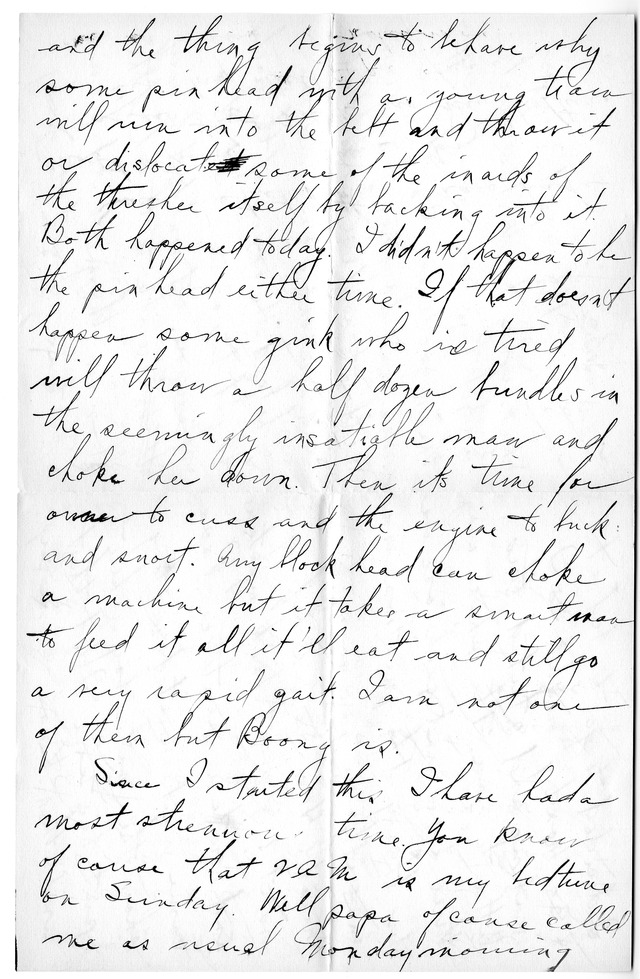 and the thing begins to behave why
some pinhead with a young team
will run into the belt and throw it
or dislocate some of the inards of
the thresher itself by backing into it.
Both happened today. I didn't happen to be
the pinhead either time. If that doesn't
happen some gink who is tired
will throw a half dozen bundles in
the seemingly insatiable maw and
choke her down. Then its time for
owner to cuss and the engine to buck
and snort. Any block head can choke
a machine but it takes a smart man
to feed it all it'll eat and still go
a very rapid gait. I am not one
of them but Boong is.
Since I started this I have had a
most strenuous time. You know
of couse that 2 A M is my bedtime
on Sunday. Well papa of couse called
me as usual Monday morning